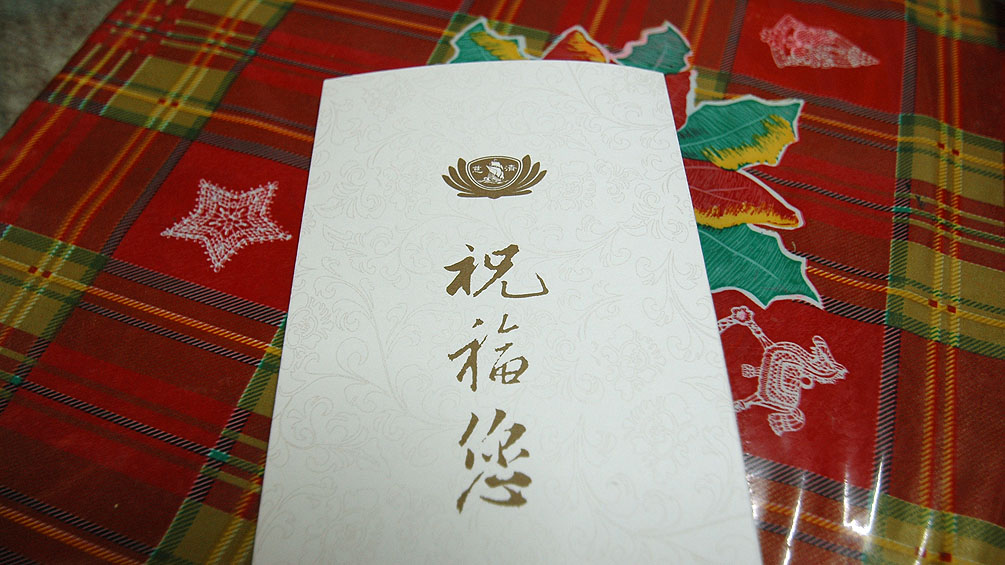 慈濟
祝福您